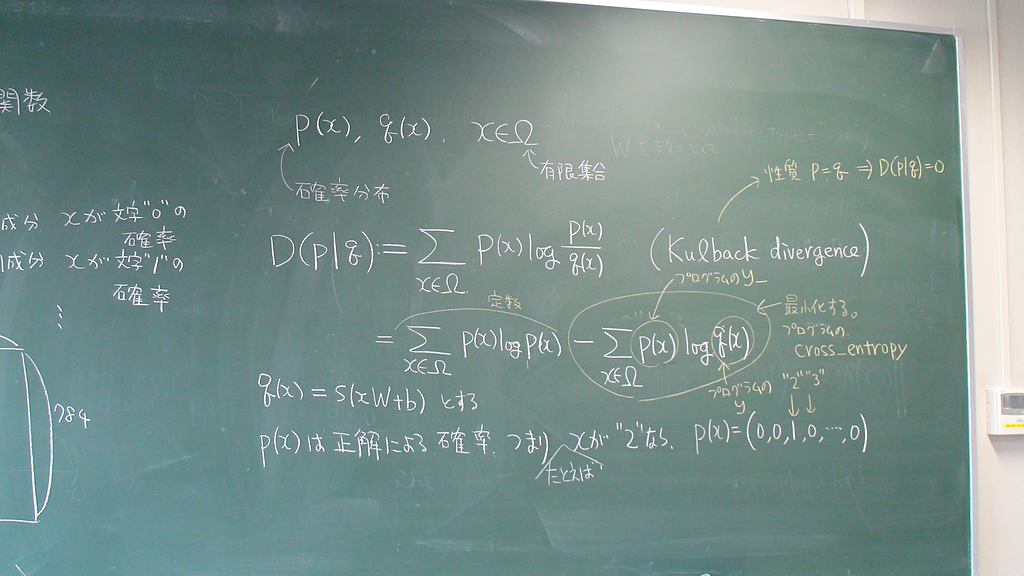 関数
p(x), q(x), x∈Ω
有限集合
確率分布
性質 p=q ⇒ D(p|q)=0
成分 xが文字"0"の
確率
成分 xが文字"1"の
確率
⋮
784
D(p|q):= Σ_{x∈Ω} p(x) log p(x)/q(x) (Kulback divergence)
プログラムのy_
定数
最小化する。
プログラムの
cross_entropy
= Σ_{x∈Ω} p(x) log p(x) − Σ_{x∈Ω} p(x) log q(x)
プログラムの
y
q(x) = S(xW+b) とする
"2" "3"
p(x)は正解による確率. つまり xが"2"なら. p(x)=(0,0,1,0,…,0)
たとえば